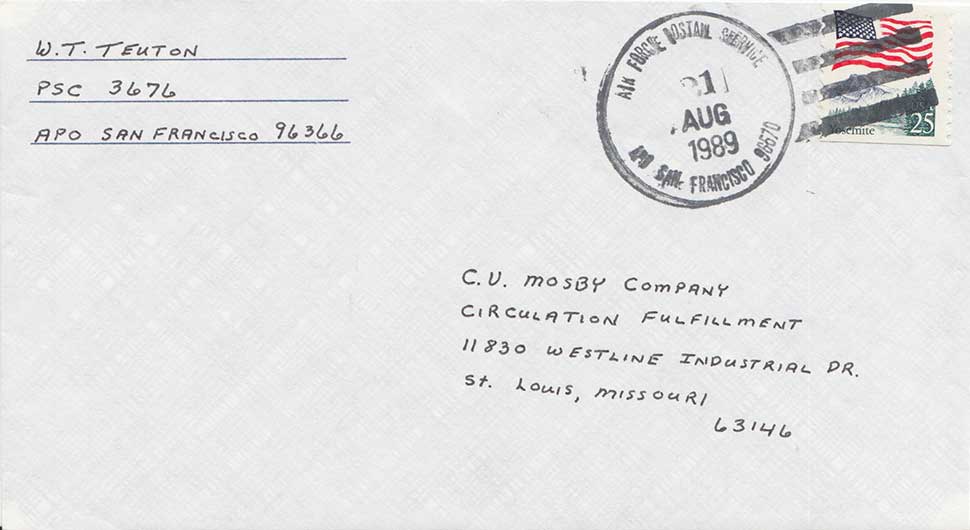 W.T. TEUTON
PSC 3676
APO SAN FRANCISCO 96366
AIR FORCE POSTAL SERVICE
AUG
1989
APO SAN FRANCISCO
USA
Yosemite 25
C.V. MOSBY COMPANY
CIRCULATION FULFILLMENT
11830 WESTLINE INDUSTRIAL DR.
St. LOUIS, MISSOURI
63146